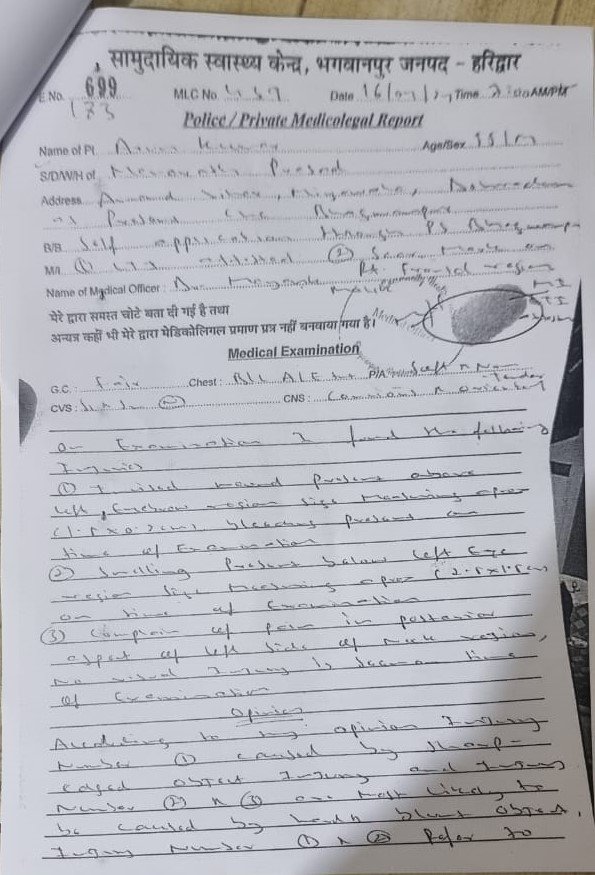 सामुदायिक स्वास्थ्य केन्द्र, भगवानपुर जनपद - हरिद्वार
E.No. 699 MLC No. Date 16/0 Time AM/PM
173
Police / Private Medicolegal Report
Name of Pt. Kumar Age/Sex 55/M
S/D/W/H of Prasad
Address
at Present CHC Bhagwanpur
B/B Self application through PS Bhagwanpur
M/I ① LTI attested ② Scar Mark on
Rt. Frontal region
Name of Medical Officer : Dr.
मेरे द्वारा समस्त चोटे बता दी गई है तथा
अन्यत्र कहीं भी मेरे द्वारा मेडिकोलिगल प्रमाण पत्र नहीं बनवाया गया है।
Medical Examination
G.C. : Fair Chest : B/L AE P/A Soft & Non
tender
CVS: CNS : Conscious & oriented
On Examination I found the following
Injuries
① Incised wound present above
left Eyebrow region size measuring aprox
(1.5x0.2cm), bleeding present on
time of Examination
② Swelling Present below left Eye
region size measuring aprox (2.5x1.5cm)
on time of Examination
③ Complain of pain in posterior
aspect of left side of neck region,
no visual Injury is seen on time
of Examination
Opinion
According to my opinion Injury
Number ① caused by sharp-
edged object Injury and Injury
Number ② & ③ are most likely to
be caused by hard blunt object,
Injury Number ① & ② Refer to